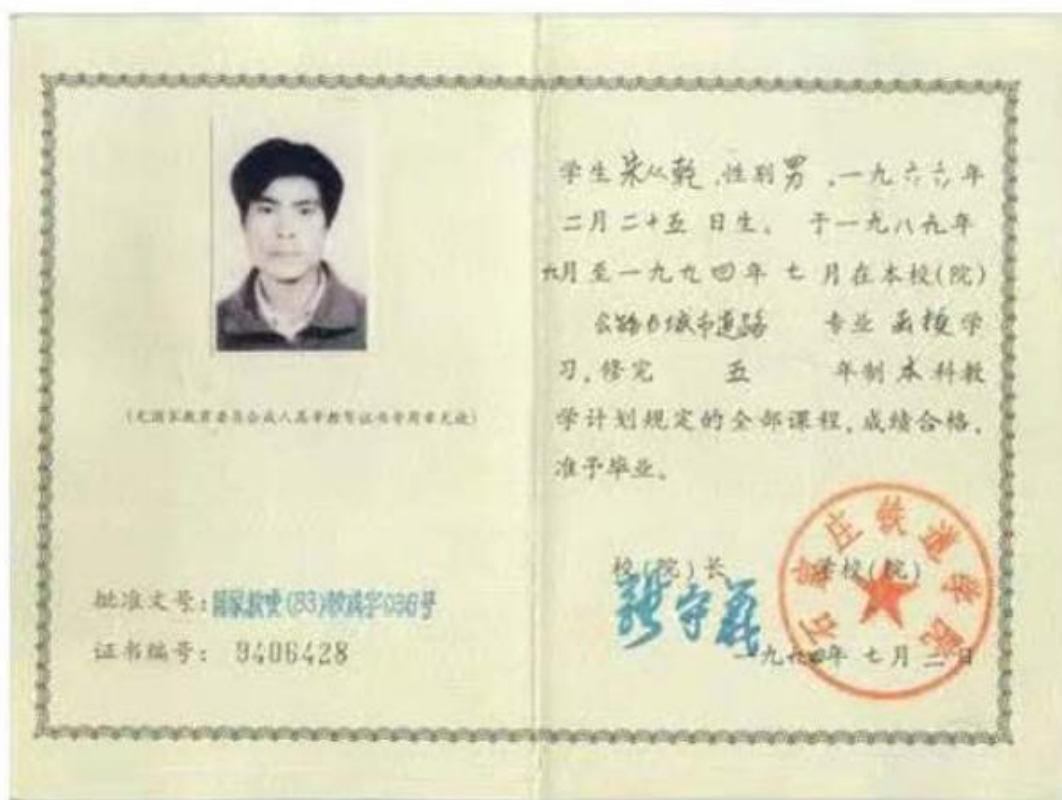 (无国家教育委员会成人高等教育证书专用章无效)
批准文号:国家教委(83)教成字036号
证书编号: 9406428
学生宋从乾,性别男,一九六六年
二月二十五日生。于一九八九年
九月至一九九四年七月在本校(院)
公路与城市道路 专业函授学
习,修完 五 年制本科教
学计划规定的全部课程,成绩合格,
准予毕业。
校(院)长
学校(院)
石家庄铁道学院
一九九四年七月二日